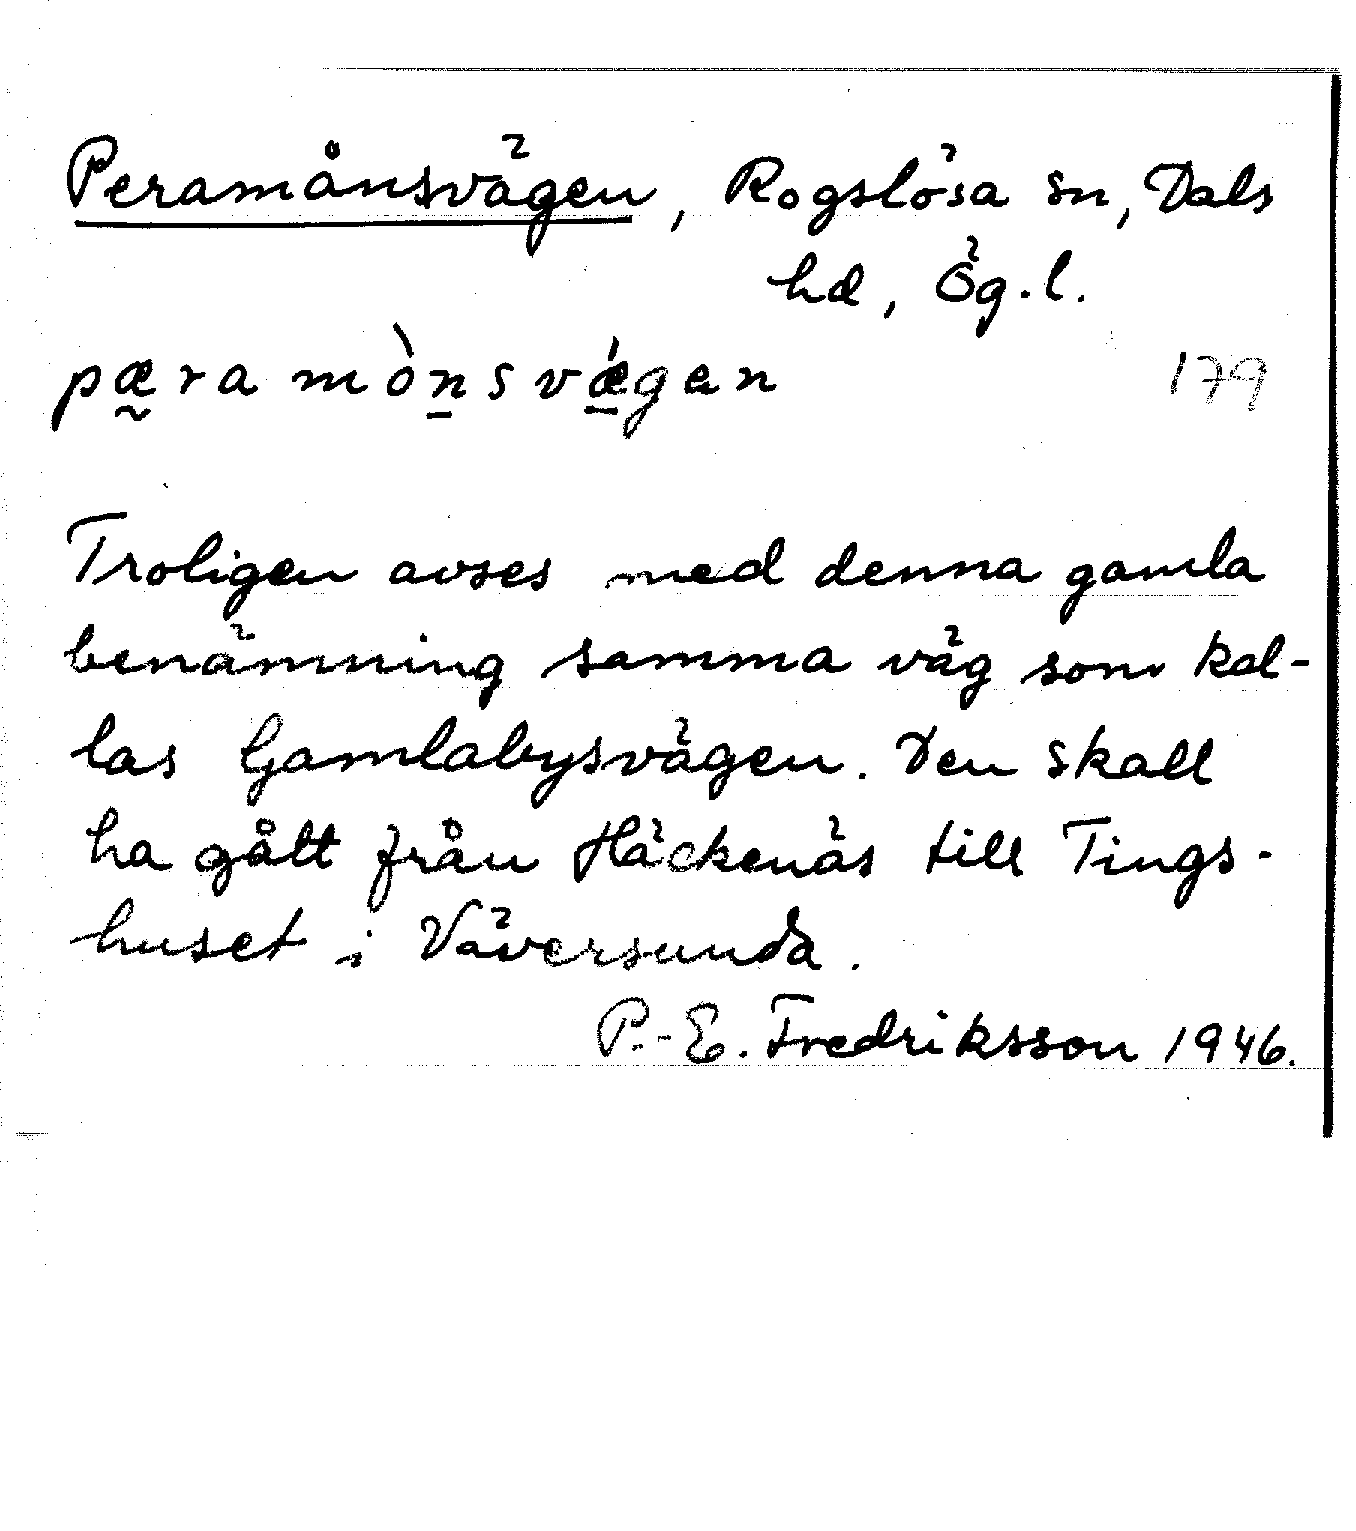 Peramånsvägen, Rogslösa sn, Dals
hd, Ög.l.
pæ̰ramòn̲svǽ̲gen 179
Troligen avses med denna gamla
benämning samma väg som kal-
las Gamlabysvägen. Den skall
ha gått från Häckenäs till Tings-
huset i Väversunda.
P.-E. Fredriksson 1946.